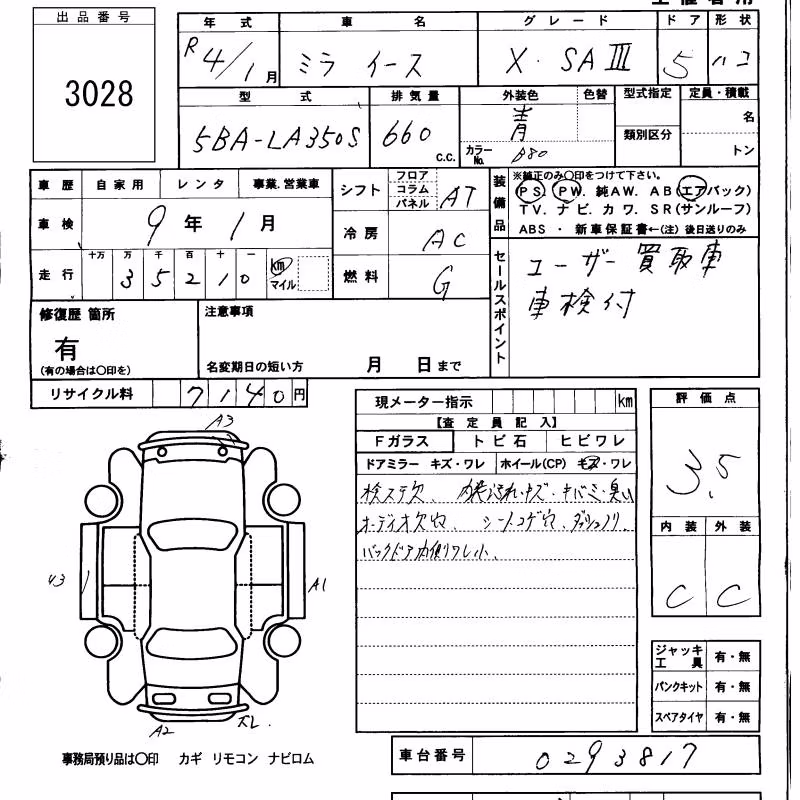 出品番号
3028
年式 車名 グレード ドア 形状
R4/1月 ミライース X・SAⅢ 5 ハコ
型式 排気量 外装色 色替 型式指定 定員・積載
5BA-LA350S 660 c.c. 青 名
カラーNo. B80 類別区分 トン
車歴 自家用 レンタ 事業.営業車 シフト フロア コラム パネル AT
装備品 ※純正のみ〇印をつけて下さい。
PS. PW. 純AW. AB(エアバック)
TV. ナビ. カワ. SR(サンルーフ)
ABS ・ 新車保証書←(注) 後日送りのみ
車検 9年1月 冷房 AC
走行 十万 万 千 百 十 一 km マイル
3 5 2 1 0 燃料 G
セールスポイント ユーザー買取車
車検付
修復歴 箇所 注意事項
有
(有の場合は〇印を) 名変期日の短い方 月 日まで
リサイクル料 7140円
現メーター指示 km 評価点
【査定員記入】 3.5
Fガラス トビ石 ヒビワレ
ドアミラー キズ・ワレ ホイール(CP) キズ・ワレ
検ステ欠、内装汚れ・キズ・ヤバミ・臭い
オーディオ欠品、シートコゲ穴、ダッシュノリ、
バックドア内側ワレ小、
内装 外装
C C
A3
A1
A2
ジャッキ工具 有・無
パンクキット 有・無
スペアタイヤ 有・無
事務局預り品は〇印 カギ リモコン ナビロム
車台番号 0293817